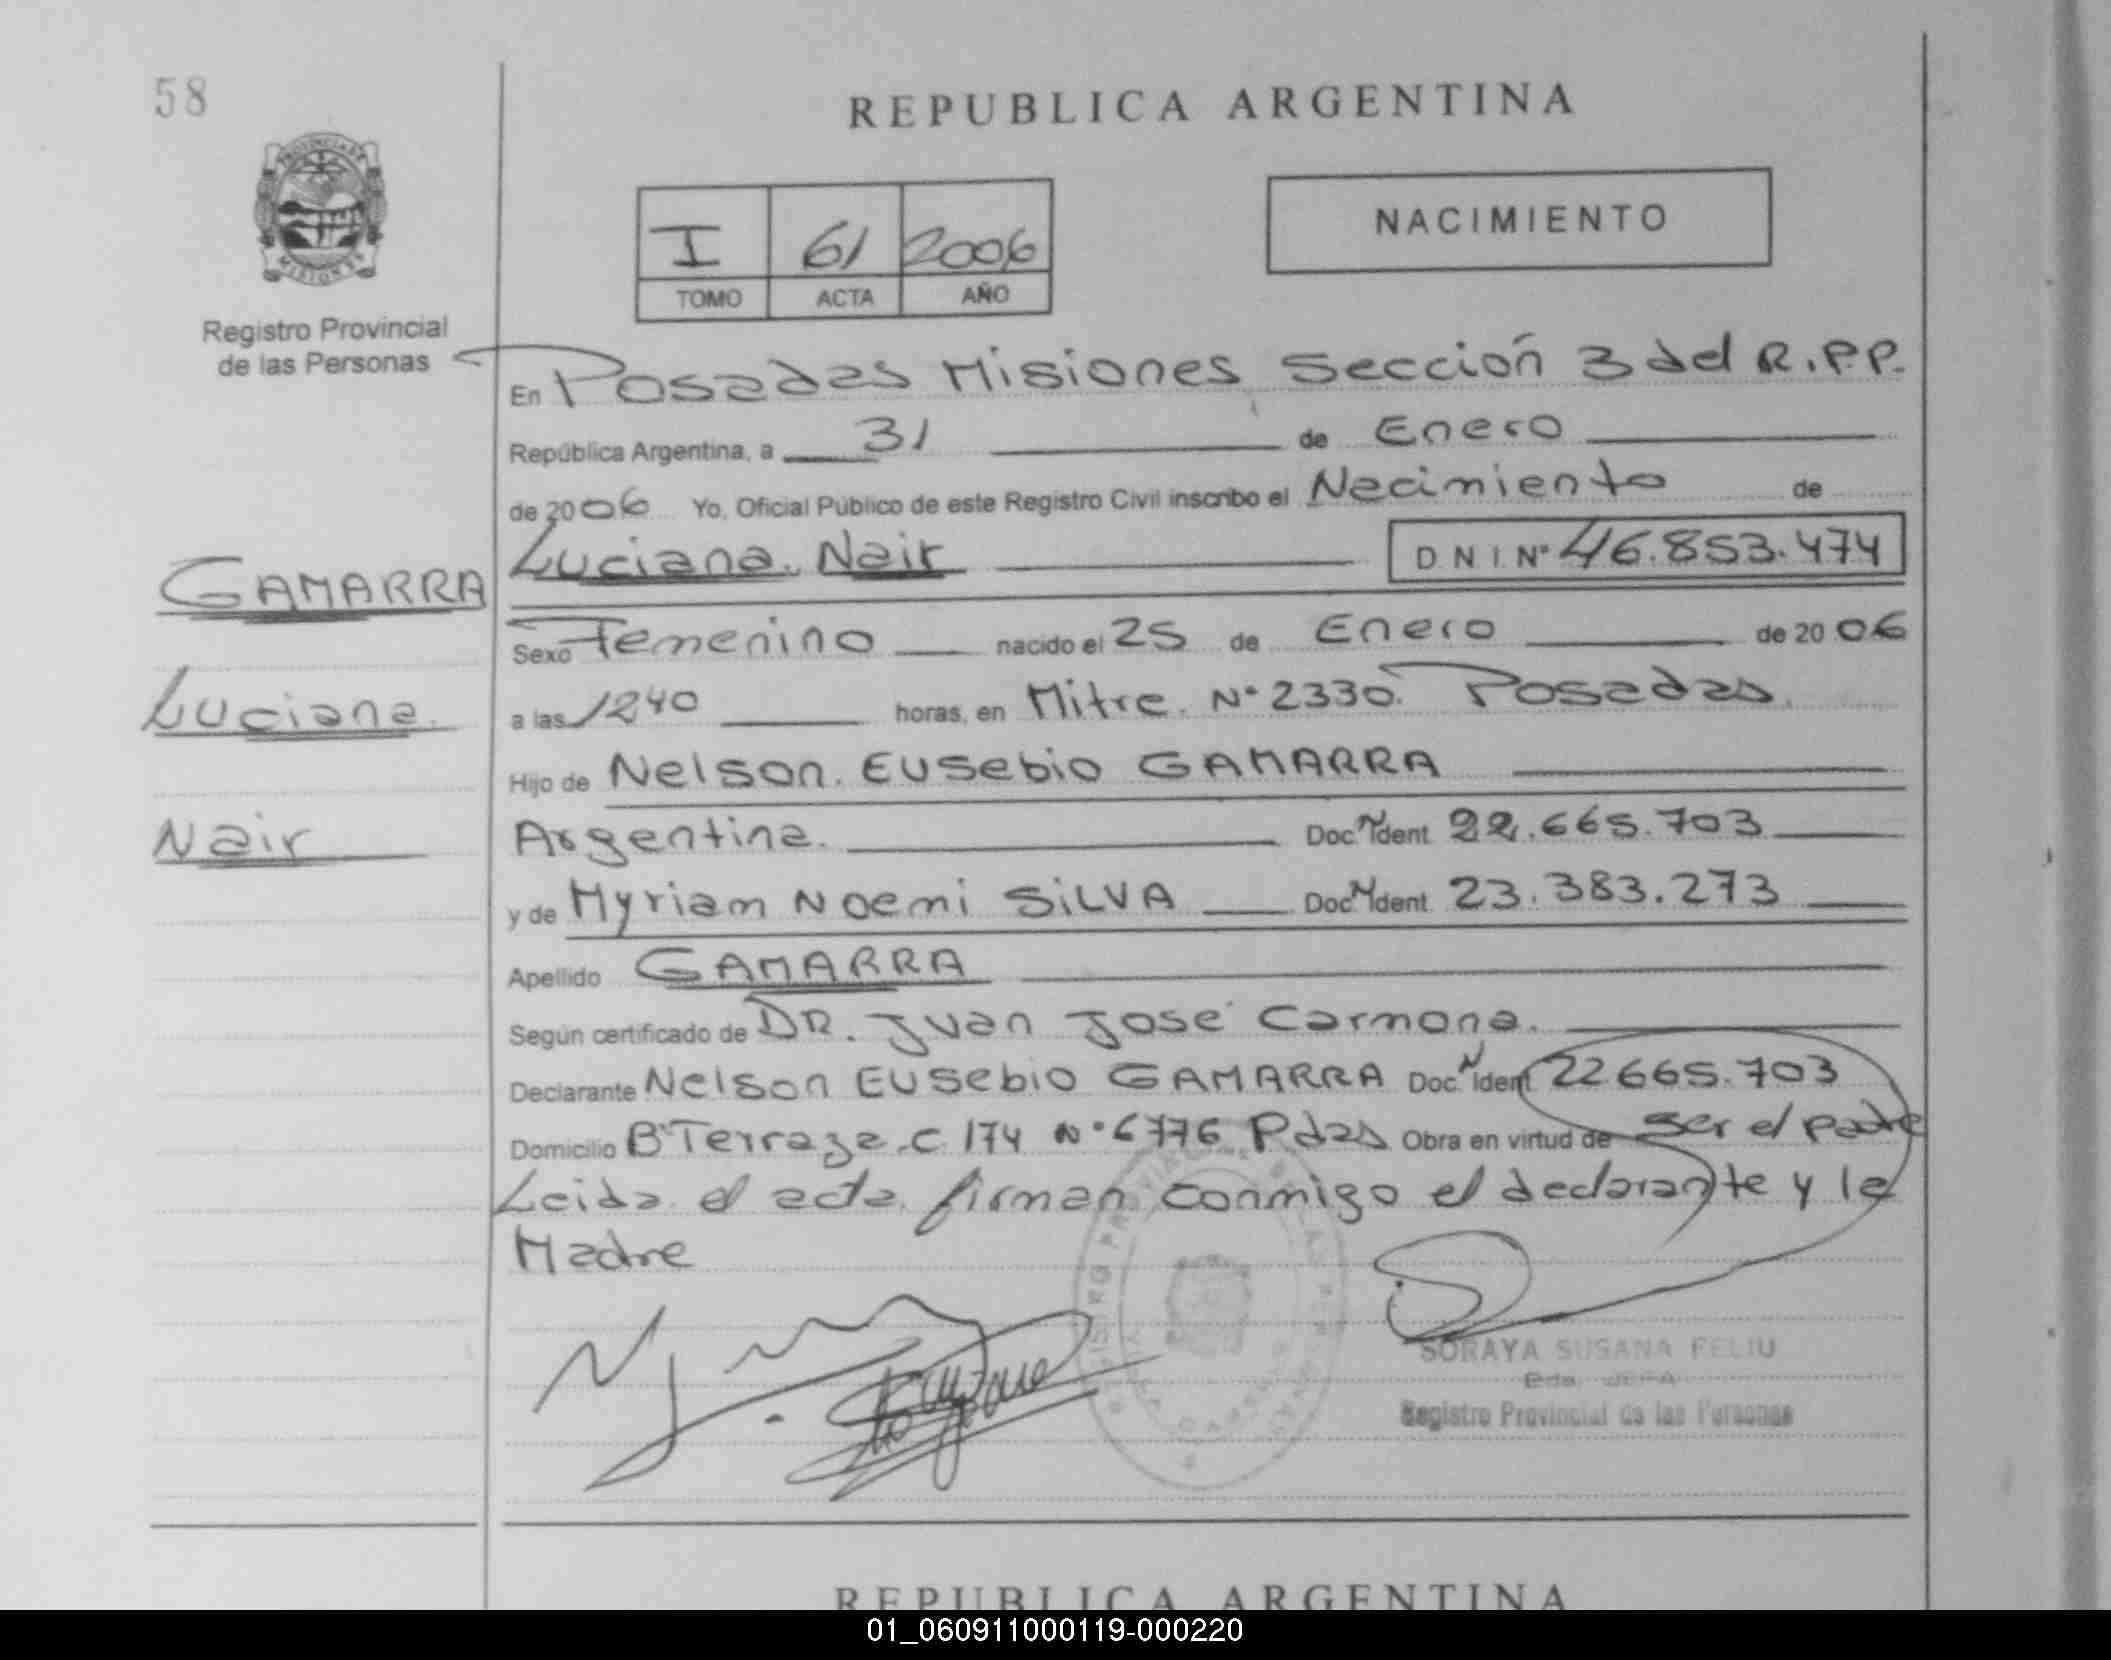 58
REPUBLICA ARGENTINA
PROVINCIA DE
MISIONES
Registro Provincial
de las Personas
I 61 2006
TOMO ACTA AÑO
NACIMIENTO
En Posadas Misiones Sección 3 del R.P.P.
República Argentina, a 31 de Enero
de 2006 Yo, Oficial Público de este Registro Civil inscribo el Nacimiento de
Luciana Nair D N I Nº 46.853.474
GAMARRA
Luciana
Nair
Sexo Femenino nacido el 25 de Enero de 2006
a las 1240 horas, en Mitre Nº 2330. Posadas.
Hijo de Nelson Eusebio GAMARRA
Argentina. Doc. Ident. 22.665.703
y de Myriam Noemi SiLVA Doc. Ident. 23.383.273
Apellido GAMARRA
Según certificado de DR. Juan José Carmona.
Declarante Nelson Eusebio GAMARRA Doc. Ident. 22665.703
Domicilio Bº Terraza C 174 Nº 6776 Pdas Obra en virtud de ser el padre
Leida el acta firman conmigo el declarante y la
Madre
SORAYA SUSANA FELIU
Registro Provincial de las Personas
REPUBLICA ARGENTINA
01_060911000119-000220